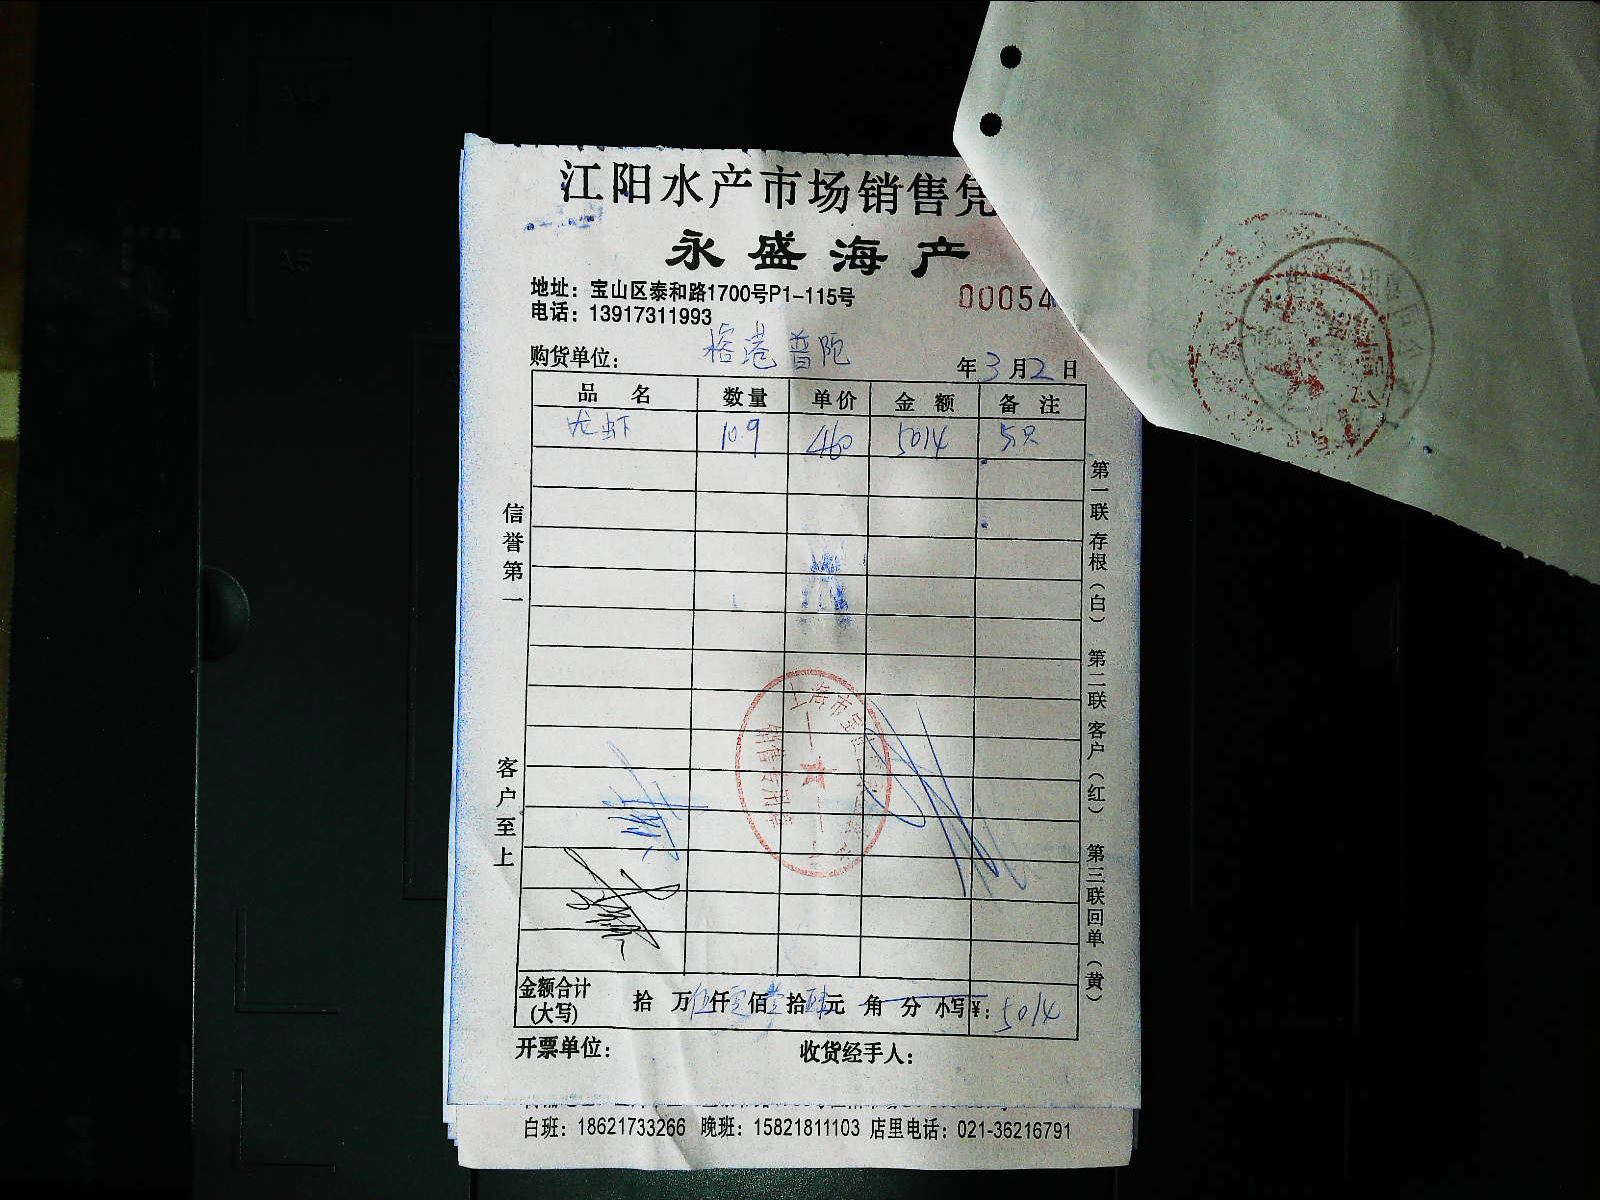 江阳水产市场销售凭
永盛海产
地址：宝山区泰和路1700号P1-115号
电话：13917311993
00054
购货单位： 榕港普陀
年3月2日
品名 数量 单价 金额 备注
龙虾 10.9 460 5014 5只
信誉第一
客户至上
第一联 存根（白） 第二联 客户（红） 第三联 回单（黄）
上海市宝
销售专用章
金额合计(大写) 拾 万 伍 仟 零 佰 壹 拾 肆 元 角 分 小写¥：5014
开票单位： 收货经手人：
白班：18621733266 晚班：15821811103 店里电话：021-36216791